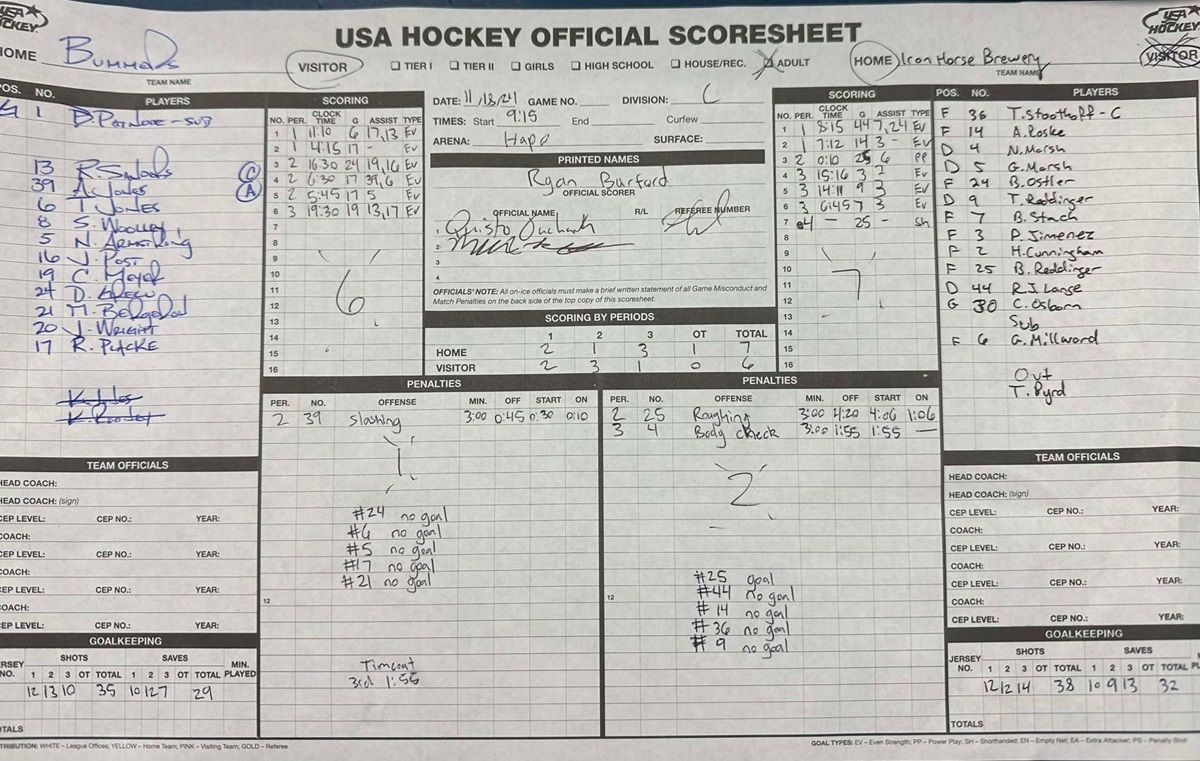 USA HOCKEY
USA HOCKEY OFFICIAL SCORESHEET
USA HOCKEY
HOME Bummers
TEAM NAME
VISITOR
☐ TIER I ☐ TIER II ☐ GIRLS ☐ HIGH SCHOOL ☐ HOUSE/REC. ☒ ADULT
HOME Iron Horse Brewery
TEAM NAME
VISITOR
POS. NO. PLAYERS
G 1 D. - SUB
13 R. C
39 A. Jones A
6 T. JONES
8 S. WOOLLEY
5 N. ARMSTRONG
16 J. POST
19 C. Moyer
24 D. GREEN
21 M.
20 J. WRIGHT
17 R. PLACKE
K.
K.
SCORING
NO. PER. CLOCK TIME G ASSIST TYPE
1 1 11:10 6 17,13 Ev
2 1 4:15 17 - Ev
3 2 16:30 24 19,16 Ev
4 2 6:30 17 39,6 Ev
5 2 5:45 17 5 Ev
6 3 19:30 19 13,17 Ev
7
8
9
10
11
12
13
14
15
16
6
DATE: 11/18/24 GAME NO. DIVISION: C
TIMES: Start 9:15 End Curfew
ARENA: Hapo SURFACE:
PRINTED NAMES
Ryan Burford
OFFICIAL SCORER
OFFICIAL NAME R/L REFEREE NUMBER
1
2
3
4
OFFICIALS' NOTE: All on-ice officials must make a brief written statement of all Game Misconduct and
Match Penalties on the back side of the top copy of this scoresheet.
SCORING BY PERIODS
1 2 3 OT TOTAL
HOME 2 1 3 1 7
VISITOR 2 3 1 0 6
SCORING
NO. PER. CLOCK TIME G ASSIST TYPE
1 1 8:15 44 7,24 Ev
2 1 7:12 14 3 - Ev
3 2 0:10 25 6 PP
4 3 15:16 3 2 Ev
5 3 14:11 9 3 Ev
6 3 6:45 7 3 Ev
7 4 - 25 - Sh
8
9
10
11
12
13
14
15
16
7
POS. NO. PLAYERS
F 36 T. Stoothoff - C
F 14 A. Roske
D 4 N. Marsh
D 5 G. Marsh
F 24 B. Ostler
D 9 T. Reddinger
F 7 B. Stach
F 3 P. Jimenez
F 2 H. Cunningham
F 25 B. Reddinger
D 44 R.J. Lange
G 30 C. Osborn
Sub
F 6 G. Millward
Out
T. Byrd
PENALTIES
PER. NO. OFFENSE MIN. OFF START ON
2 39 Slashing 3:00 0:45 0:30 0:10
1
#24 no goal
#6 no goal
#5 no goal
#17 no goal
#21 no goal
12
Timeout
3rd 1:55
PENALTIES
PER. NO. OFFENSE MIN. OFF START ON
2 25 Roughing 3:00 4:20 4:06 1:06
3 4 Body check 3:00 1:55 1:55 —
2
#25 goal
#44 no goal
#14 no goal
#36 no goal
#9 no goal
12
TEAM OFFICIALS
HEAD COACH:
HEAD COACH: (sign)
CEP LEVEL: CEP NO.: YEAR:
COACH:
CEP LEVEL: CEP NO.: YEAR:
COACH:
CEP LEVEL: CEP NO.: YEAR:
COACH:
CEP LEVEL: CEP NO.: YEAR:
GOALKEEPING
JERSEY NO. SHOTS 1 2 3 OT TOTAL SAVES 1 2 3 OT TOTAL MIN. PLAYED
12 13 10 35 10 12 7 29
TOTALS
TEAM OFFICIALS
HEAD COACH:
HEAD COACH: (sign)
CEP LEVEL: CEP NO.: YEAR:
COACH:
CEP LEVEL: CEP NO.: YEAR:
COACH:
CEP LEVEL: CEP NO.: YEAR:
COACH:
CEP LEVEL: CEP NO.: YEAR:
GOALKEEPING
JERSEY NO. SHOTS 1 2 3 OT TOTAL SAVES 1 2 3 OT TOTAL
12 12 14 38 10 9 13 32
TOTALS
TRIBUTION: WHITE – League Offices; YELLOW – Home Team; PINK – Visiting Team; GOLD – Referee
GOAL TYPES: EV – Even Strength; PP – Power Play; SH – Shorthanded; EN – Empty Net; EA – Extra Attacker; PS – Penalty Shot